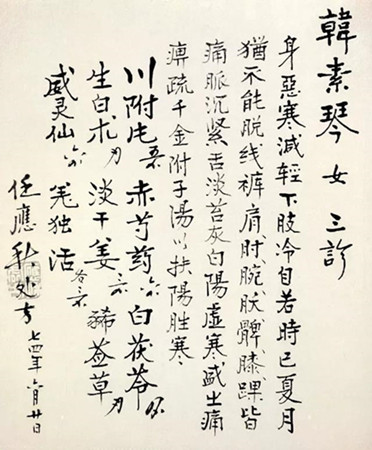 韓素琴女三診
身惡寒減輕下肢冷自若時已夏月
猶不能脱线裤肩肘腕肷髀膝踝皆
痛脈沉紧舌淡苔灰白陽虚寒盛之痛
痹疏千金附子湯以扶陽胜寒
川附片 赤芍药 白茯苓
生白朮 淡干姜 豨莶草
威灵仙 羌独活
任應秋处方 七四年六月廿日